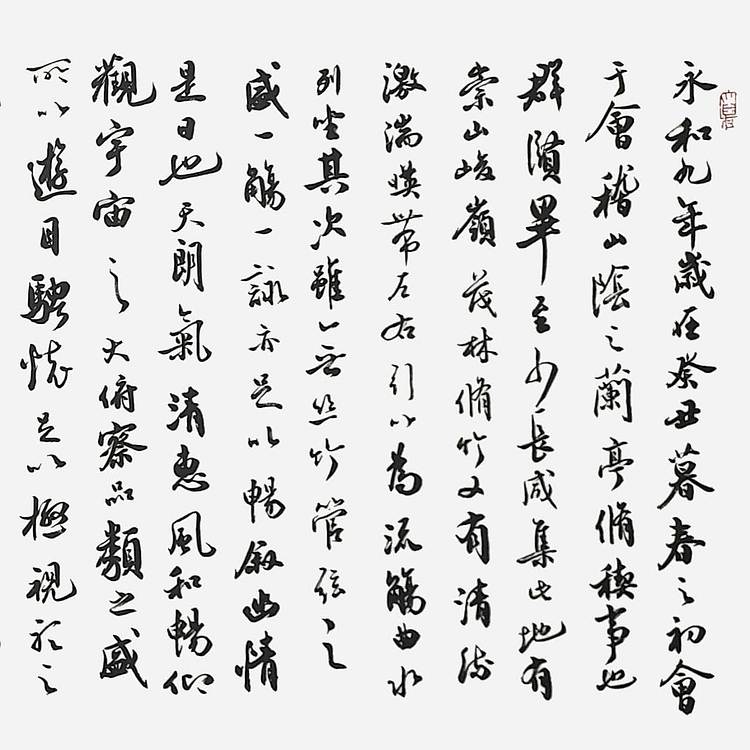 永和九年歲在癸丑暮春之初會
于會稽山陰之蘭亭脩稧事也
群賢畢至少長咸集此地有
崇山峻嶺茂林脩竹又有清流
激湍暎帶左右引以為流觴曲水
列坐其次雖無絲竹管弦之
盛一觴一詠亦足以暢敘幽情
是日也天朗氣清惠風和暢仰
觀宇宙之大俯察品類之盛
所以遊目騁懷足以極視聽之